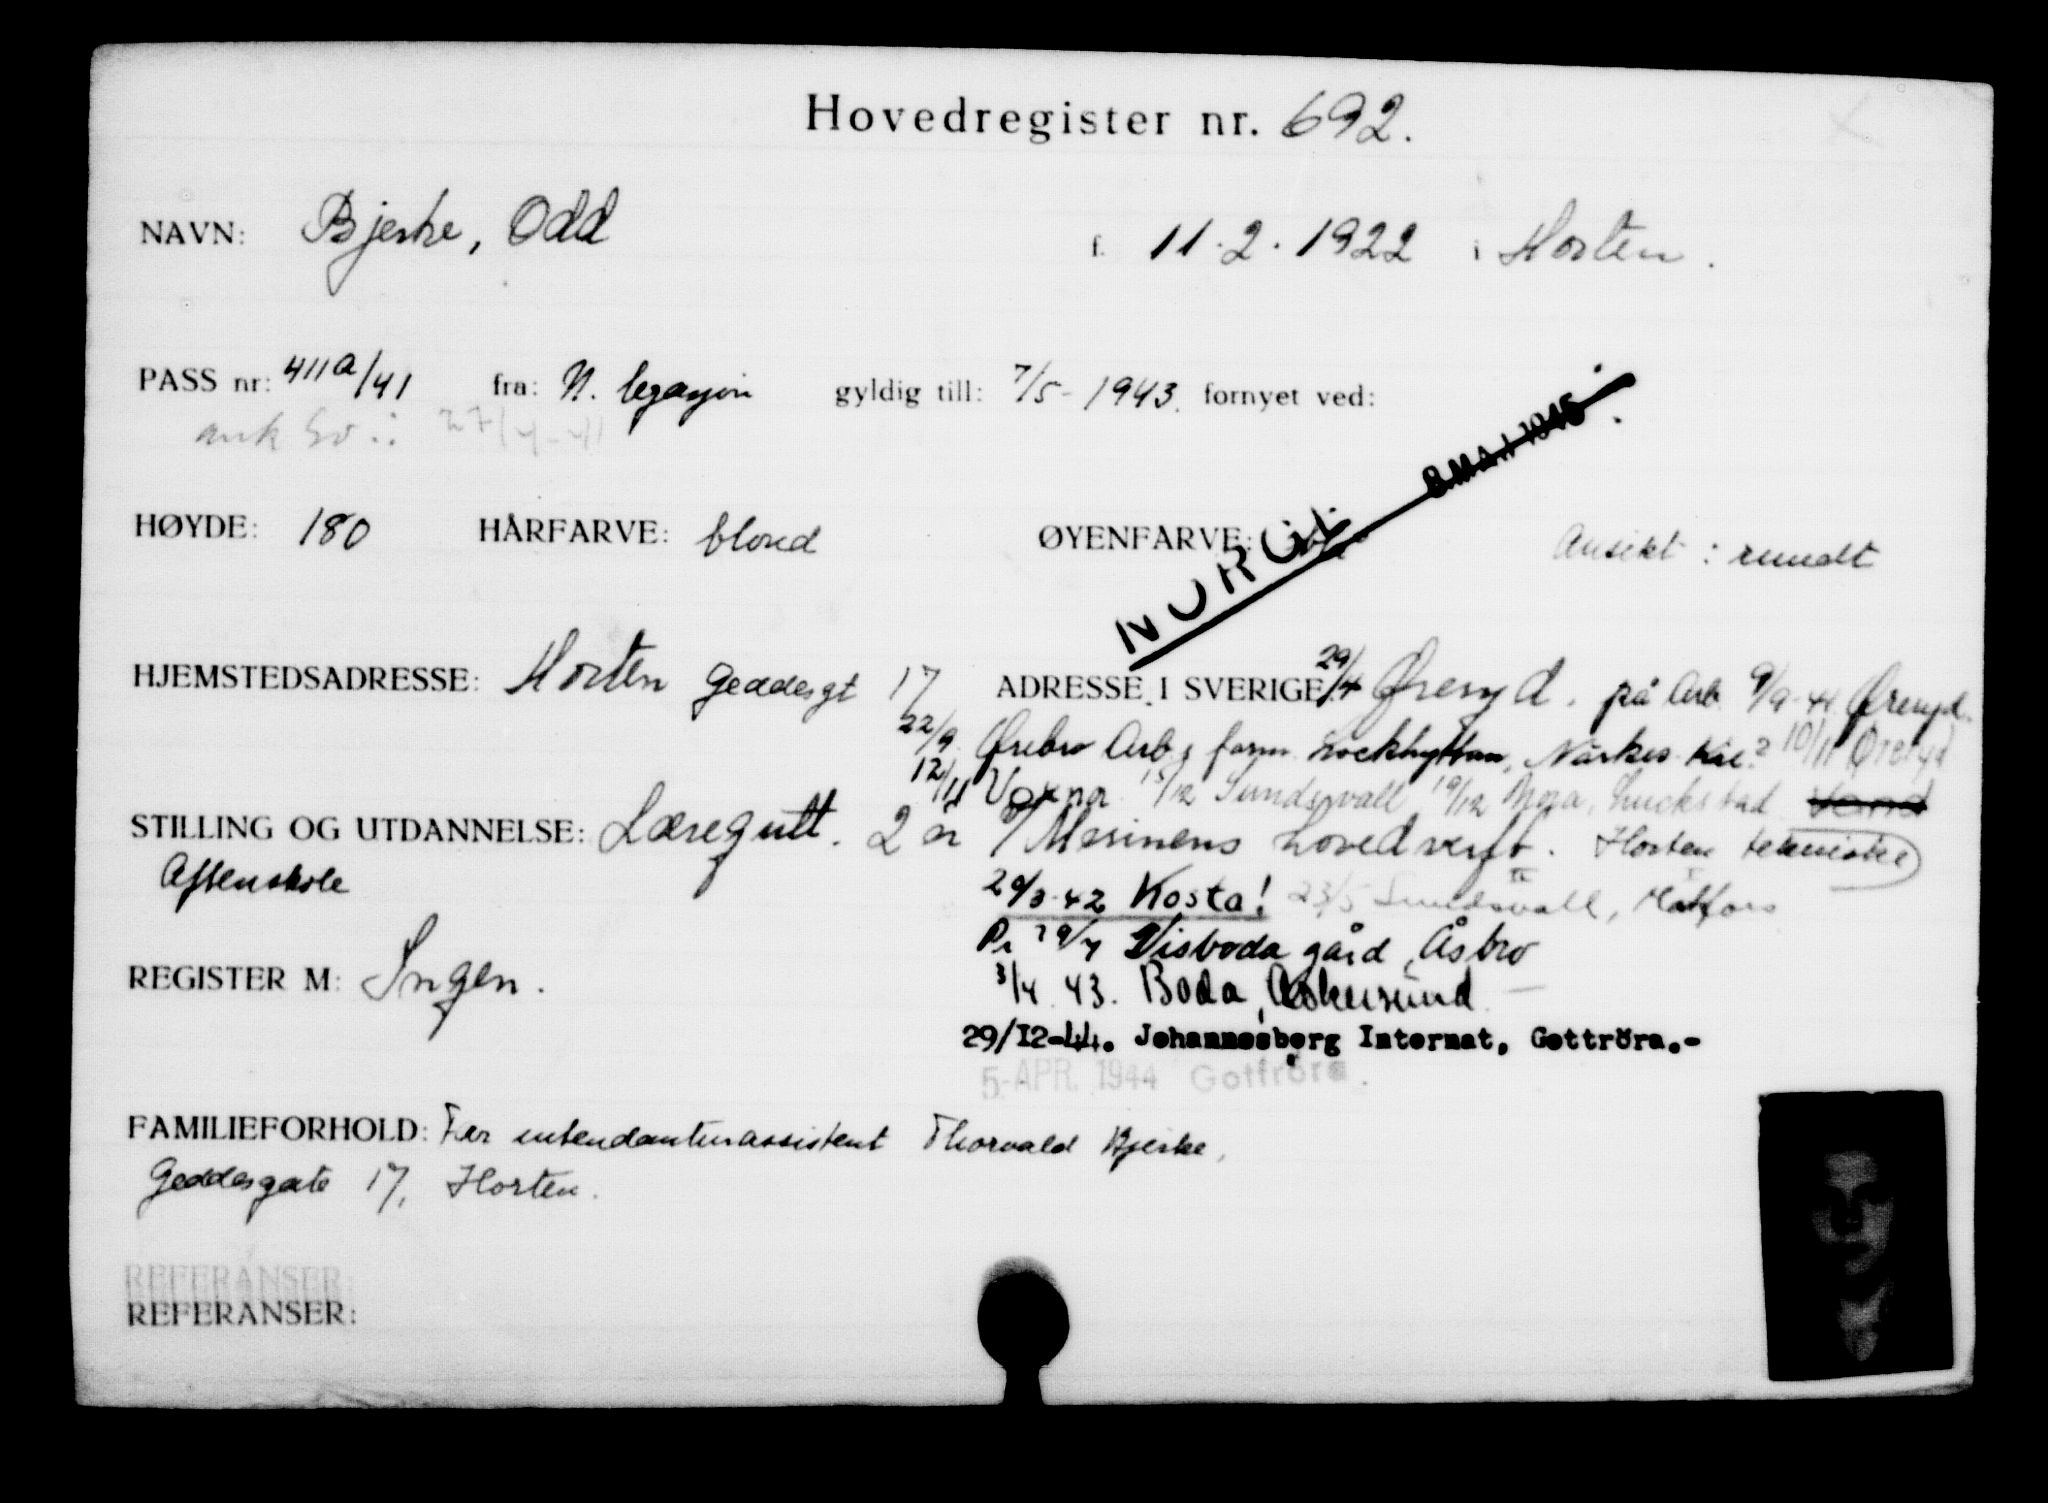 Hovedregister nr. 692.
NAVN: Bjerke, Odd f. 11.2.1922 i Horten.
PASS nr: 411a/41 fra: N. legasjon gyldig till: 7/5-1943. fornyet ved:
ank Sv.: 27/4-41
8 MAI 1945
NORGE
HØYDE: 180 HÅRFARVE: blond ØYENFARVE: Ansikt: rundt
HJEMSTEDSADRESSE: Horten Geddesgt 17 ADRESSE I SVERIGE: 29/4 Øreryd. på Arb. 9/9-41 Øreryd.
22/9 Ørebro Arb, form. Lockhyttan, Närkes Kil? 10/11 Øreryd
12/11 Voxna 15/12 Sundsvall 19/12 Luckstad
STILLING OG UTDANNELSE: Læregutt. 2 år v/ Marinens Hovedverft. Horten tekniske
Aftenskole
29/3-42 Kosta! 23/5 Sundsvall, Matfors
Pr 29/7 Visboda gård, Åsbro
REGISTER M: Ingen.
3/4 43. Boda, Askersund
29/I2-44. Johannesberg Internat, Gottröra.-
5. APR. 1944 Gottröra.
FAMILIEFORHOLD: Far intendanturassistent Thorvald Bjerke,
Geddesgate 17, Horten.
REFERANSER:
REFERANSER: